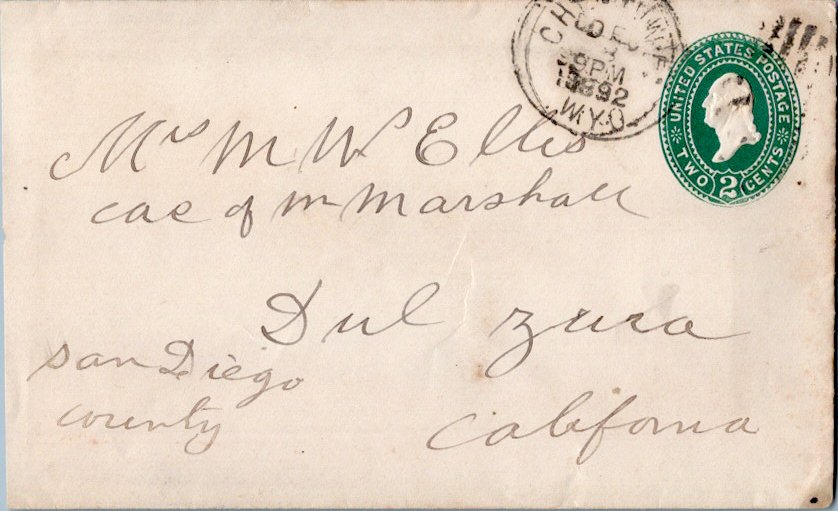 9PM
1892
WYO
UNITED STATES POSTAGE
TWO 2 CENTS
Mrs M W Ellis
cae of m Marshall
Dul zura
san Diego
county
California